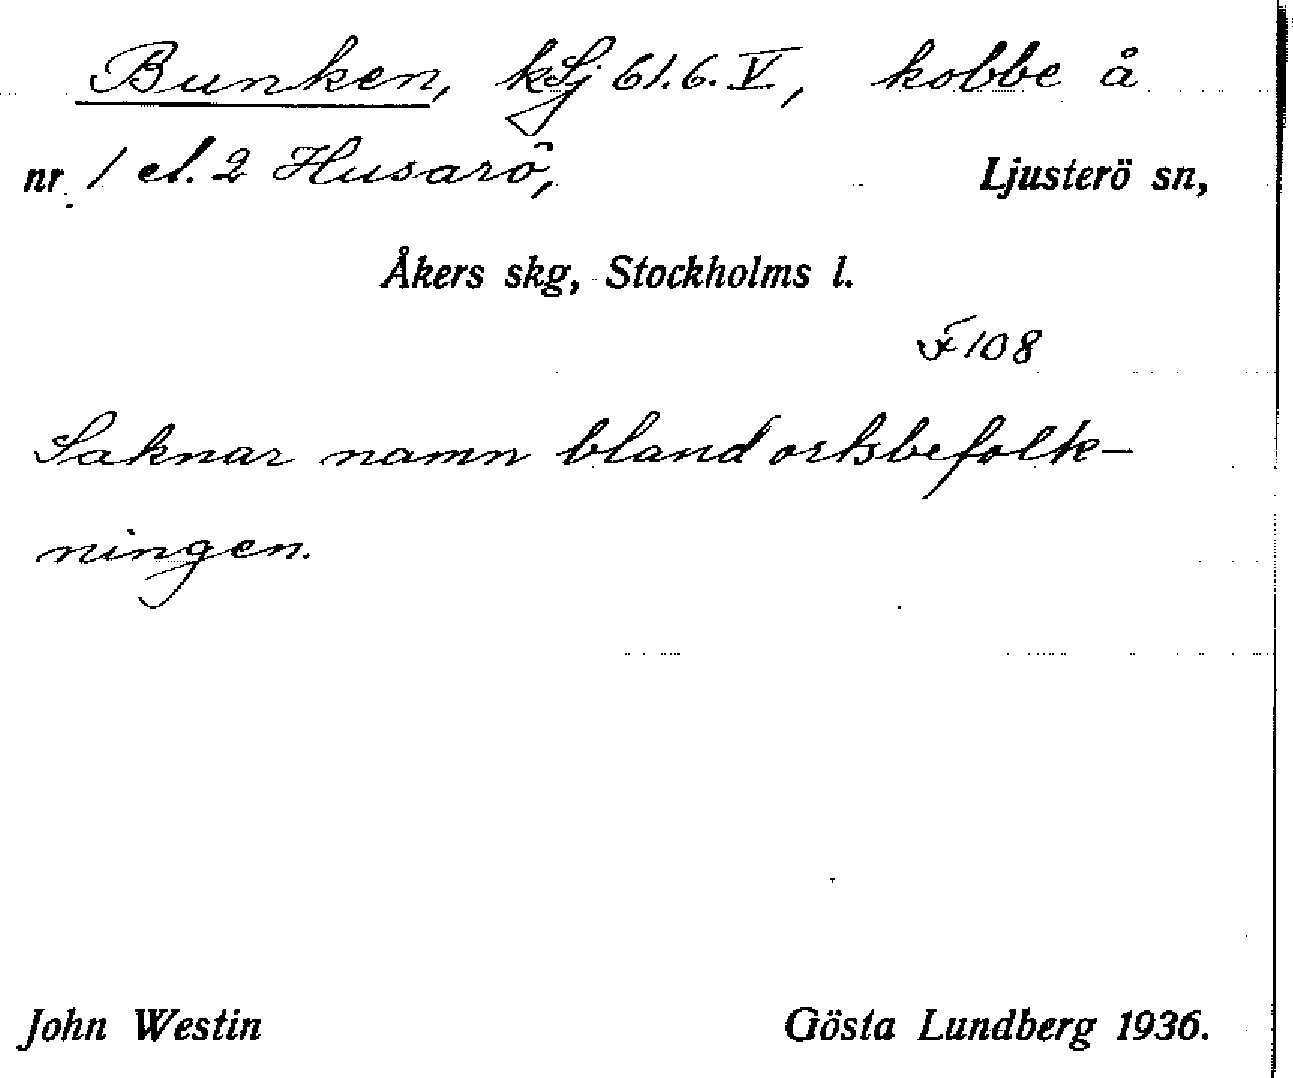 Bunken, kLj 61.6.V, kobbe å
nr 1 el. 2 Husarö, Ljusterö sn,
Åkers skg, Stockholms l.
F 108
Saknar namn bland ortsbefolk-
ningen.
John Westin Gösta Lundberg 1936.